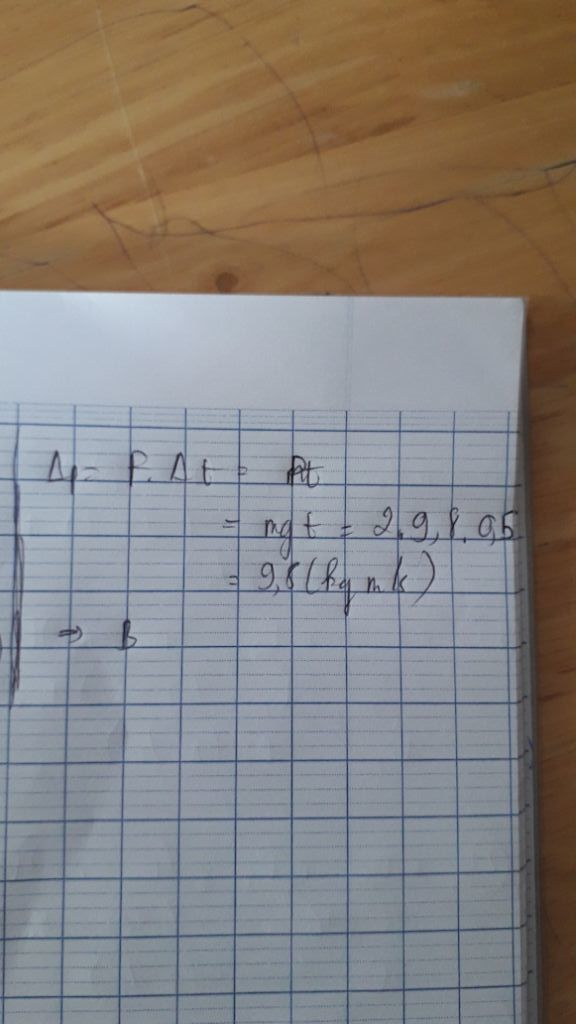 Δp = F. Δt = Pt
= mgt = 2.9,8.0,5
= 9,8 (kg m/s)
⇒ B